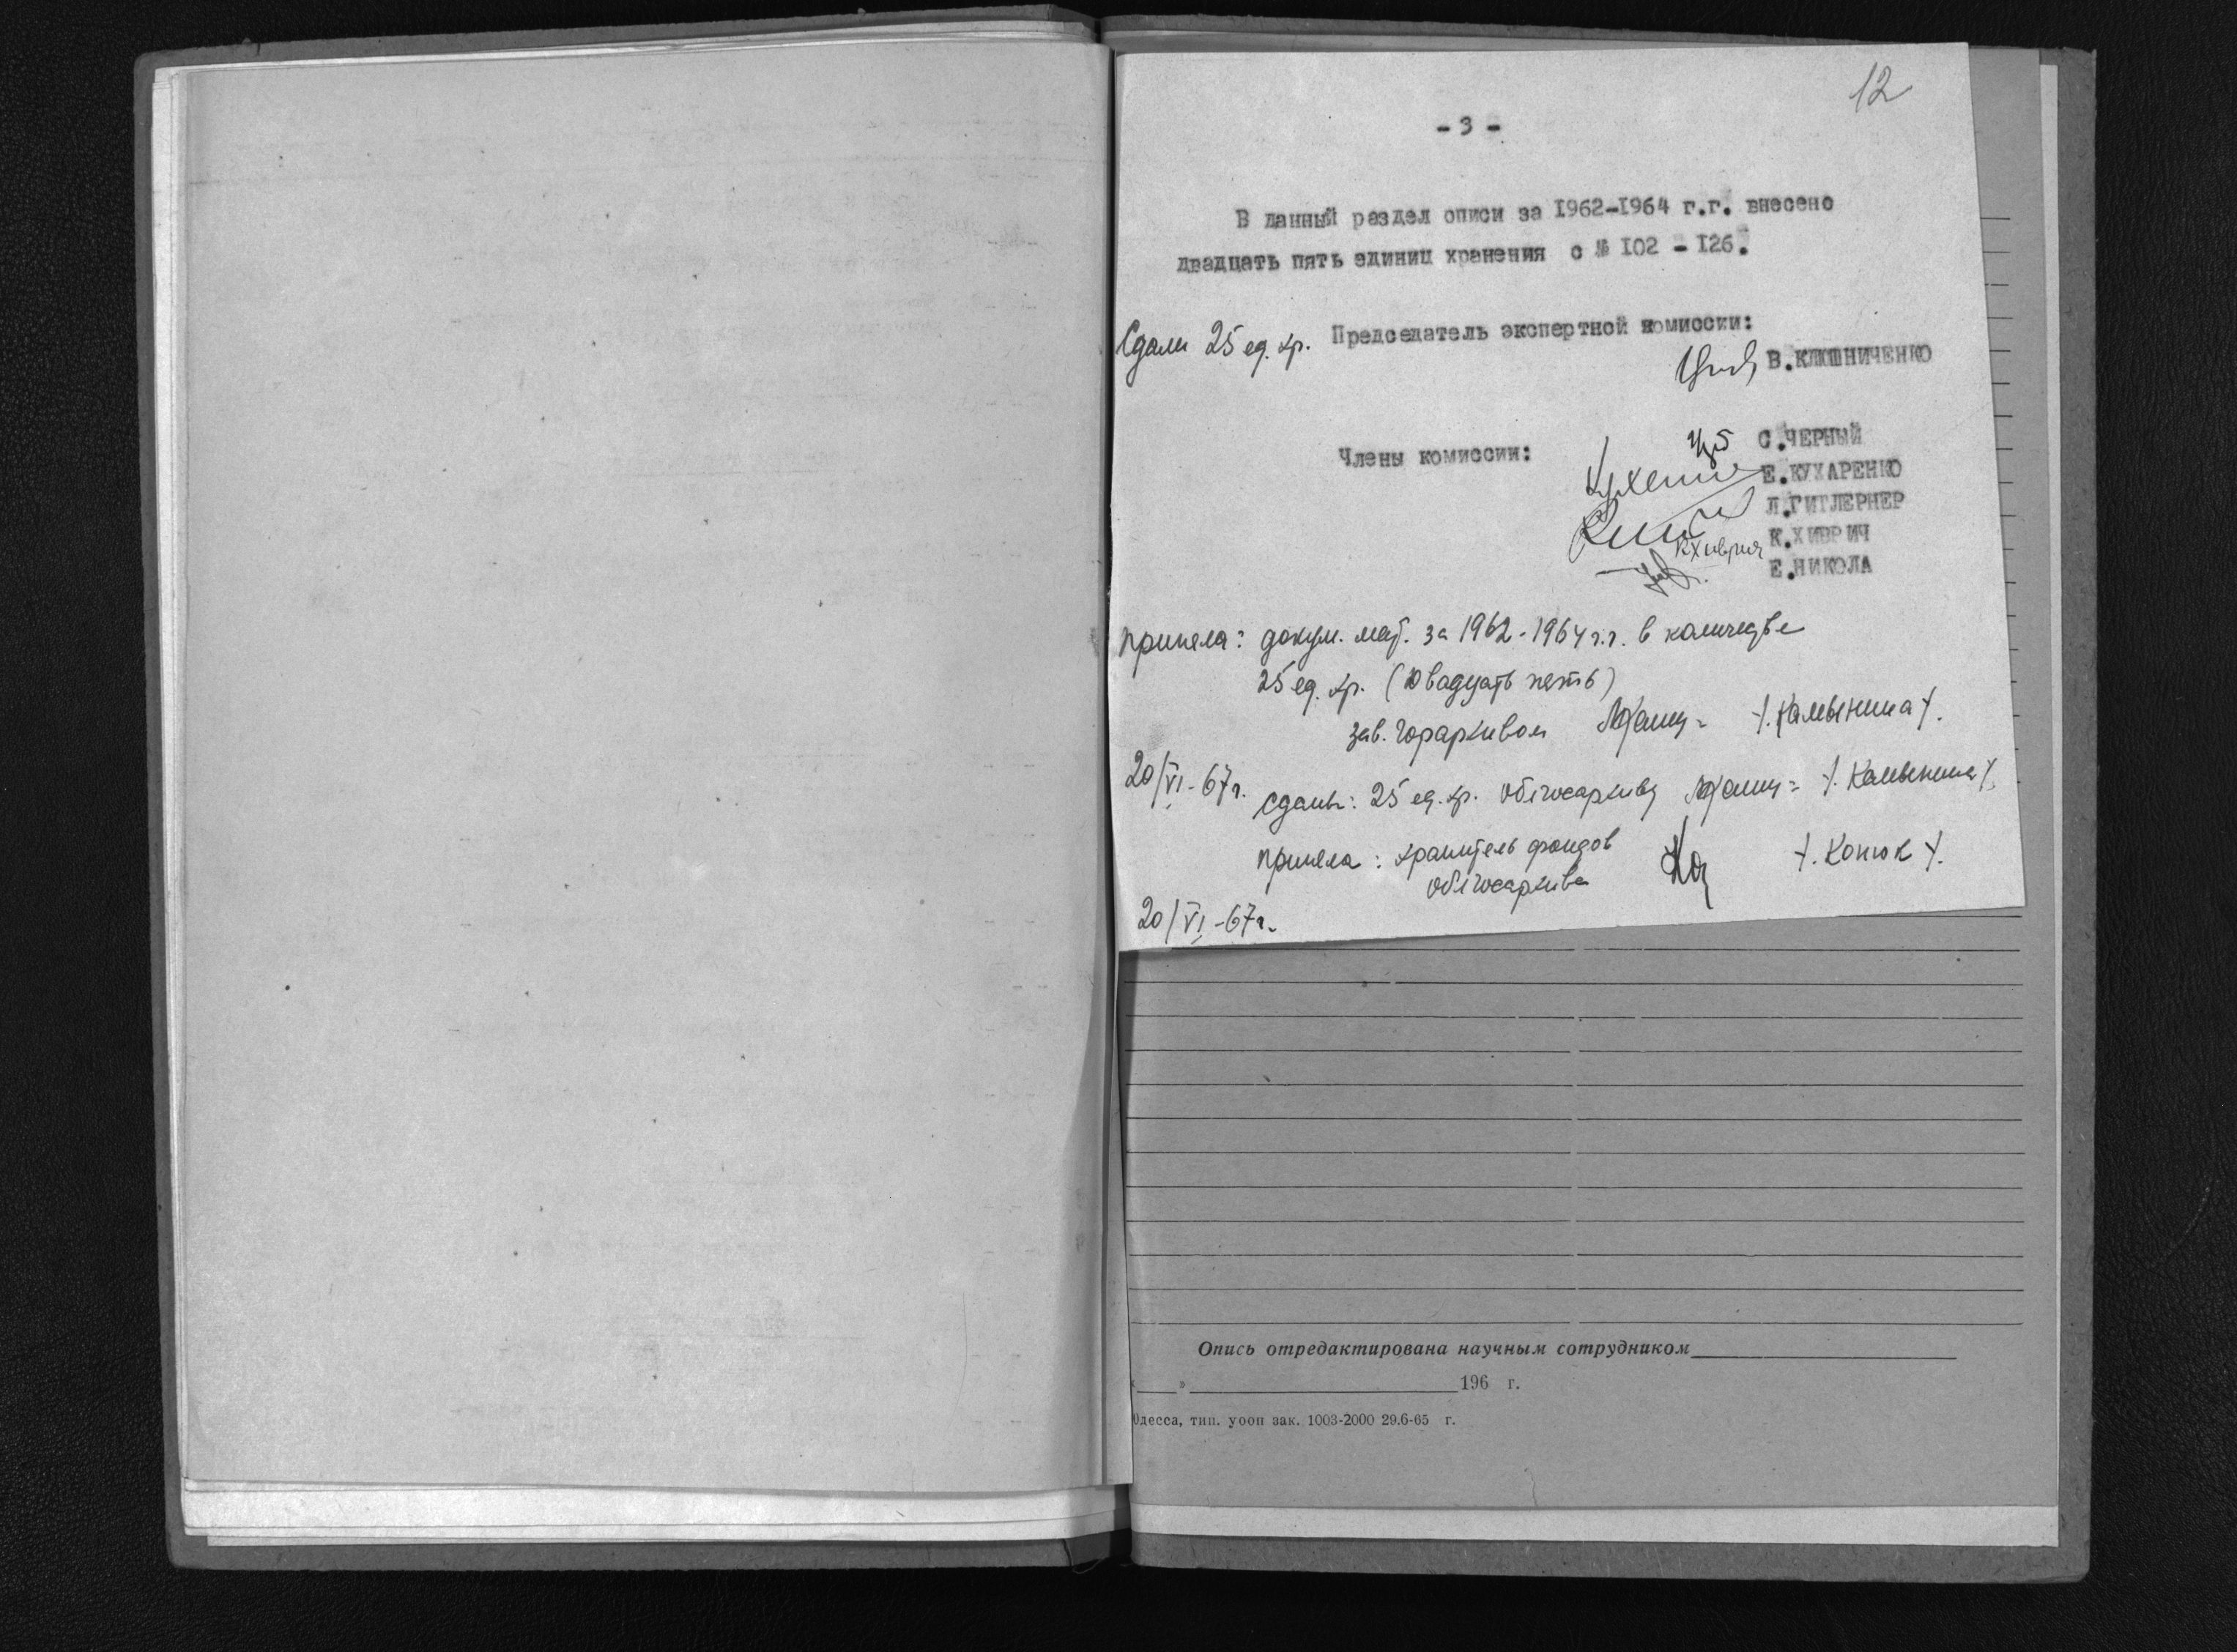 12
- 3 -
В данный раздел описи за 1962-1964 г.г. внесено
двадцать пять единиц хранения с № 102 - 126.
Сдали 25 ед. хр. Председатель экспертной комиссии:
В.КЛЮШНИЧЕНКО
Члены комиссии:
С.ЧЕРНЫЙ
Е.КУХАРЕНКО
Л.ГИТЛЕРНЕР
К.Хиврич К.ХИВРИЧ
Е.НИКОЛА
приняла: докум. мат. за 1962-1964 г.г. в количестве
25 ед. хр. (двадцать пять)
зав. Горархивом /.Камынина/.
20/VI-67г. сдали: 25 ед. хр. Облгосархиву /.Камынина/.
приняла: хранитель фондов /.Конюк/.
облгосархива
20/VI-67г.
Опись отредактирована научным сотрудником
« » 196 г.
Одесса, тип. уооп зак. 1003-2000 29.6-65 г.